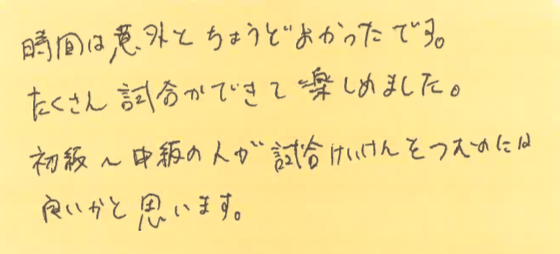 時間は意外とちょうどよかったです。
たくさん試合ができて楽しめました。
初級〜中級の人が試合けいけんをつむのには
良いかと思います。